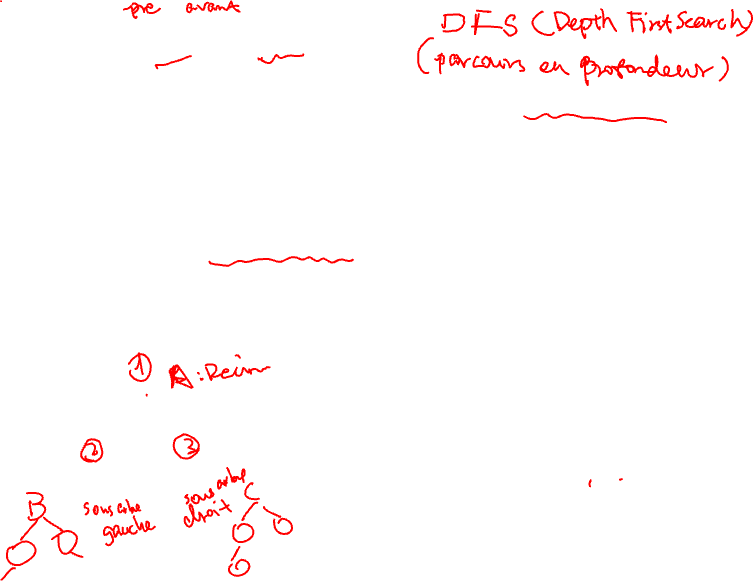 pre avant
DFS (Depth First Search)
(parcours en profondeur)
① A :
② ③
B sous arbre gauche
sous arbre droit C